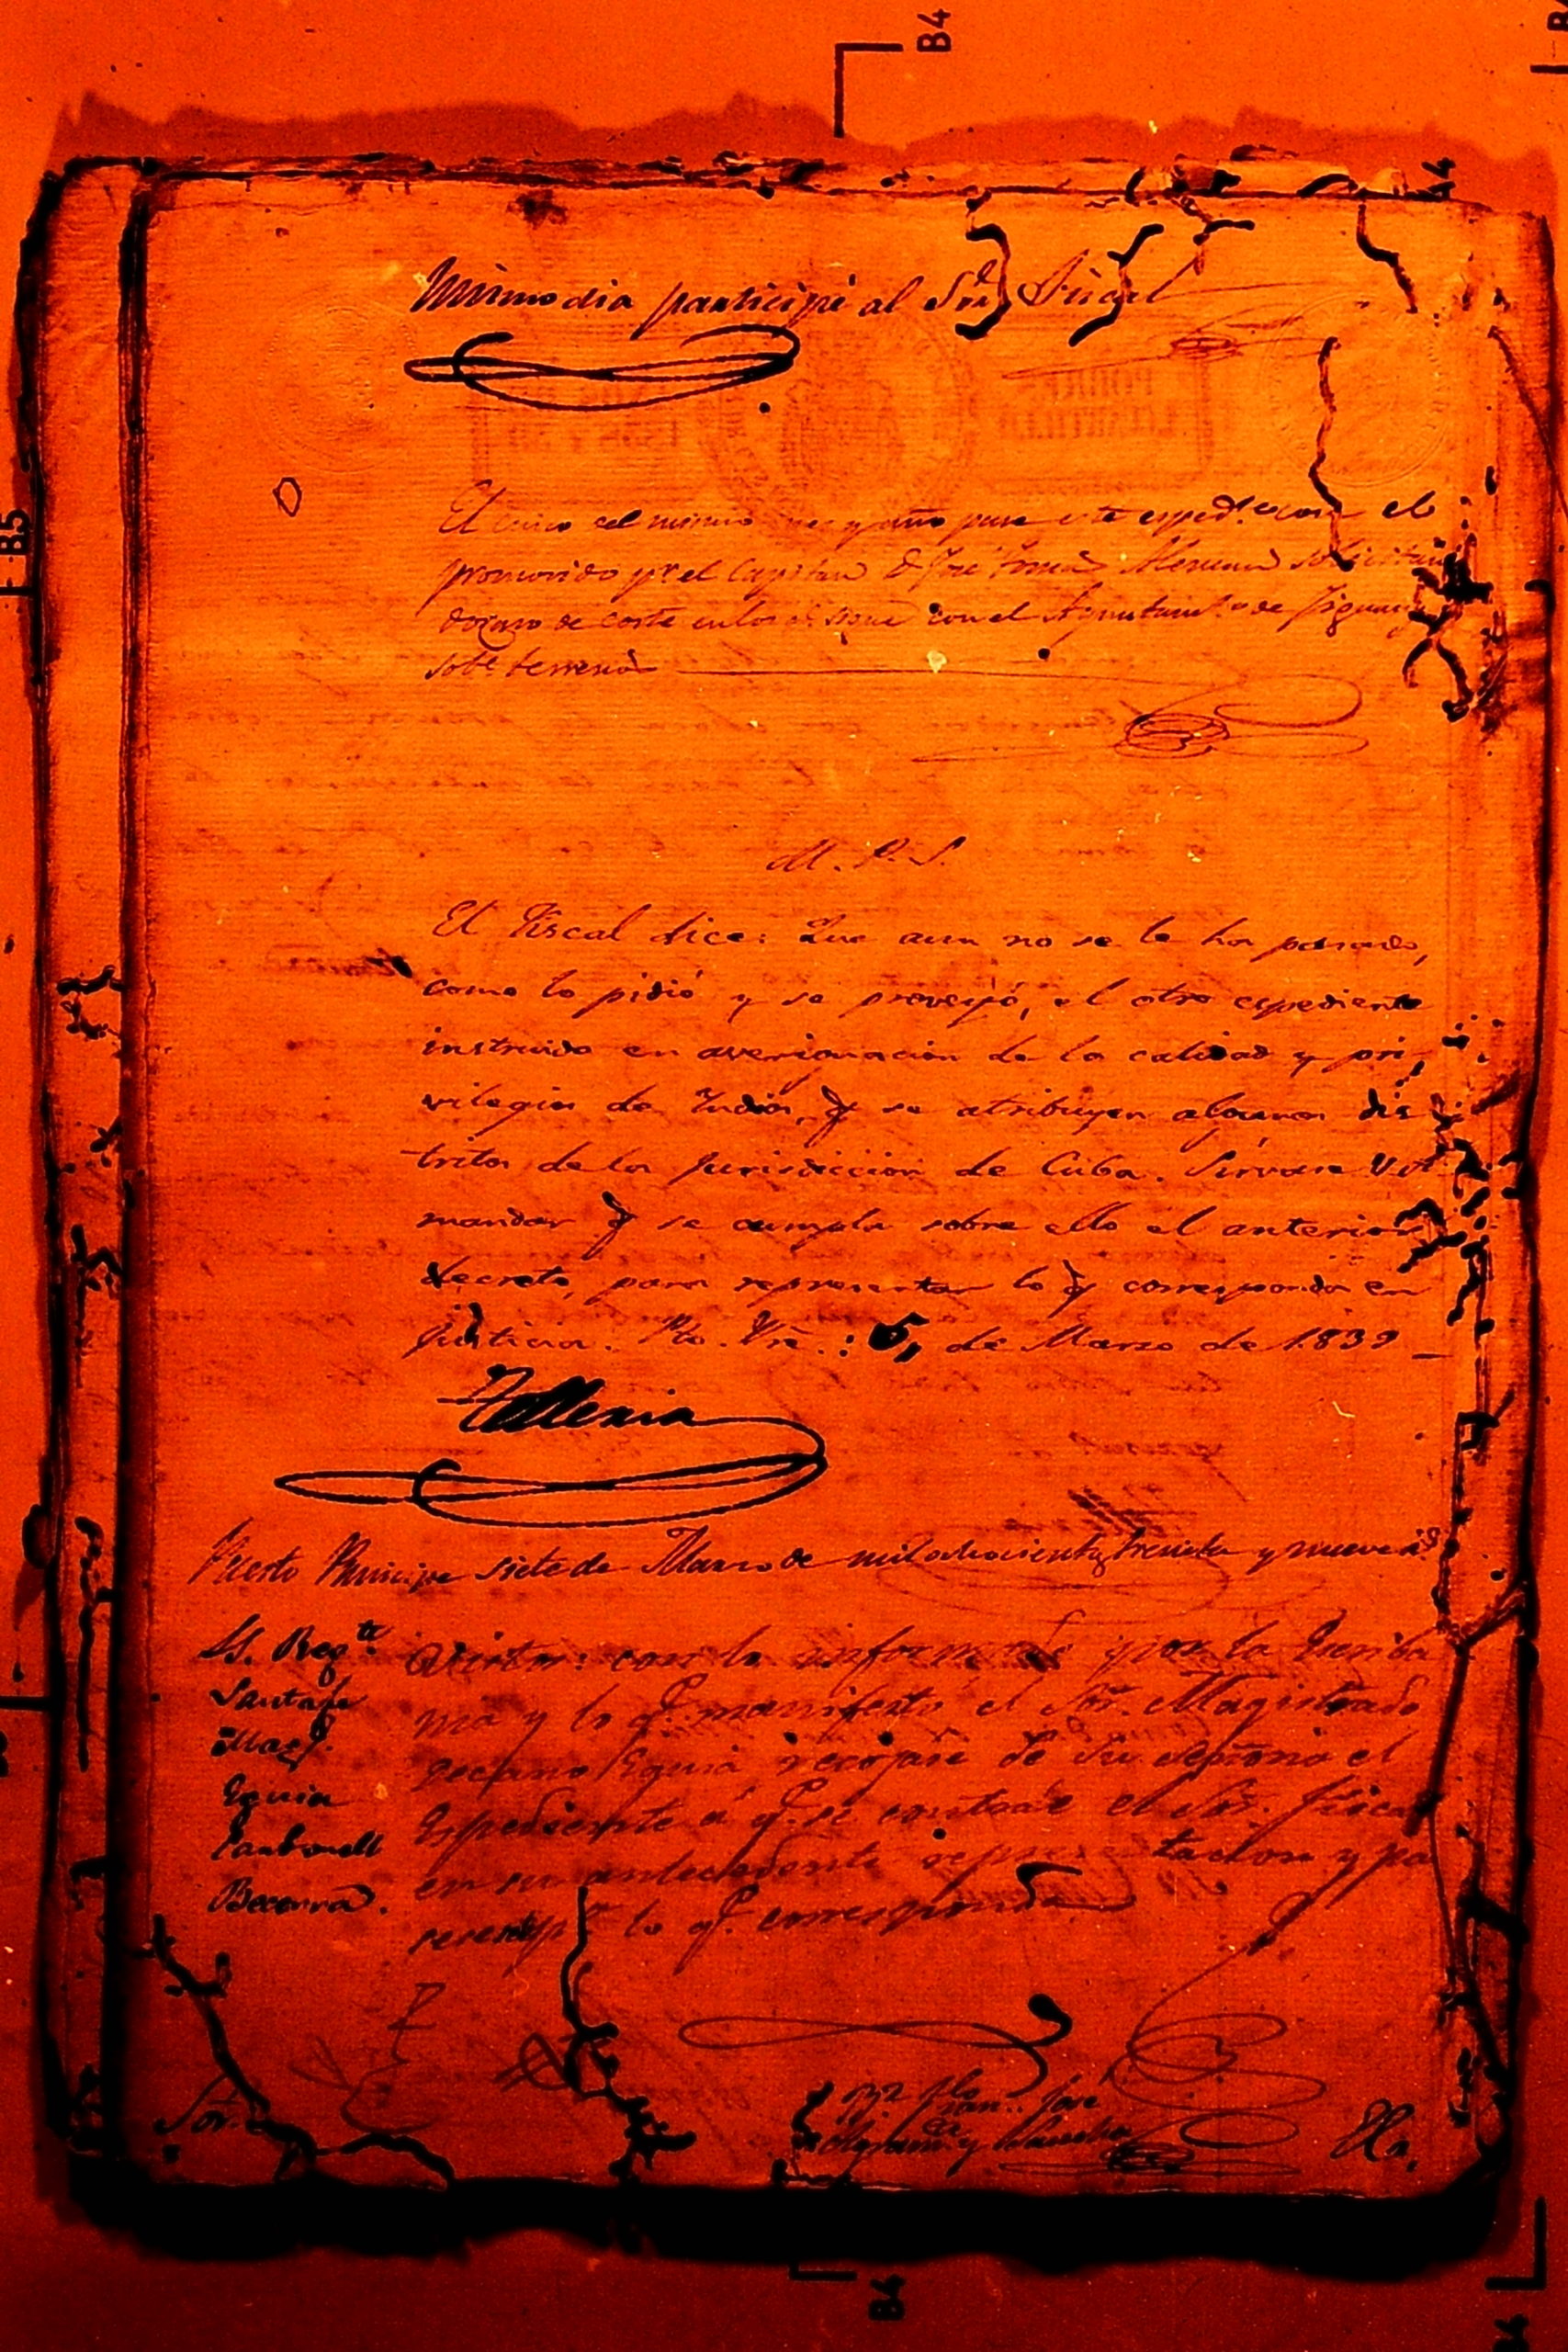 B4
Mismo dia participé al Sor. Fiscal
El cinco del mismo mes y año puse este esped.te con el
promovido pr. el Capitan D. José Tomas
de corte en los q. sigue con el Ayuntam.to de Jiguaní
sobe. terrenos
M. P. S.
El Fiscal dice: Que aun no se le ha pasado,
como lo pidió y se proveyó, el otro espediente
instruido en averiguacion de la calidad y pri-
vilegios de Indios, q̃ se atribuyen algunos dis
tritos de la jurisdiccion de Cuba. Sírvase V.A.
mandar q̃ se cumpla sobre ello el anterior
decreto, para representar lo q̃ corresponda en
justicia. Pto. Pre.: 5, de Marzo de 1839
Puerto Principe siete de Marzo de mil ochocientos treinta y nueve
SS. Regte
Santafe
Mag.
Eguia
Carbonell
Becerra.
Vistos: con lo informado por la Escriba
nia y lo q. manifestó el Sor. Magistrado
decano Eguia, recojase de su señoria el
Espediente á q. se contrae el Sor. Fiscal
en su antecedente representacion y pa
lo q. corresponda
Sor.
José
y Sancho
B5
B4